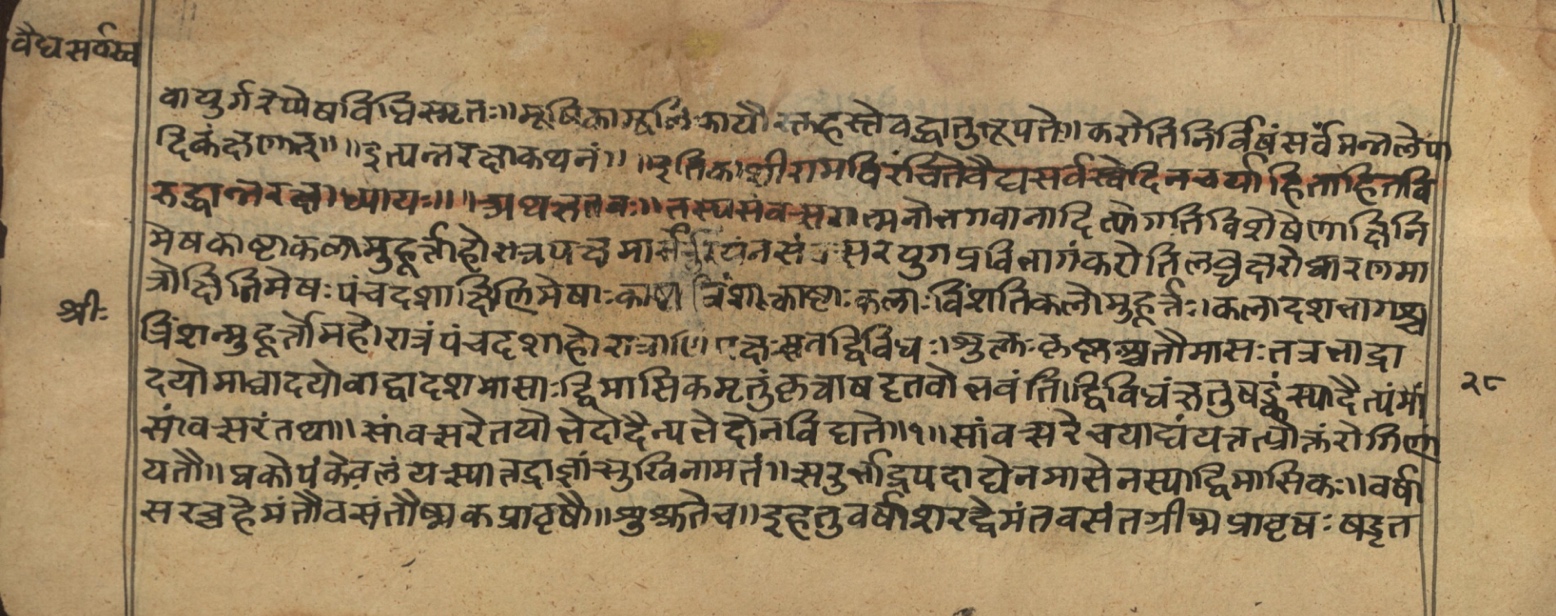 वैद्यसर्वस्व
वायुर्गरेप्येषविधिस्मृतः॥मूषिका कार्यौरक्तहस्तेवद्धातुभूपतेः॥करोतिनिर्विषंसर्वमन्नलेपा
दिकंक्षणात्॥॥इत्यन्नरक्षाकथनं॥॥इतिकाशीरामविरंचितेवैद्यसर्वस्वेदिनचर्याहिताहितवि
रुद्धान्नरक्षाध्यायः॥॥अथऋतवः॥तस्यसंवत्सरात्मनोभगवानादित्योगतिविशेषेणाक्षिनि
मेषकाष्टाकलामुहूर्त्ताहोरात्रपक्षमासर्तुरयनसंवत्सरयुगप्रविभागंकरोतिलघ्वक्षरोच्चारणमा
त्रोक्षिनिमेषःपंचदशाक्षिनिमेषाःकाष्टा त्रिंशत्काष्टाःकलाःविंशतिकलोमुहूर्त्तः।कलादशभागश्च
श्रीः
त्रिंशन्मुहूर्त्तमहोरात्रंपंचदशाहोरात्राणि पक्षःसतद्द्विविधः।शुक्लःकृष्णश्चतौमासःतत्रभाद्रा
दयोमाघादयोवाद्वादशमासाःद्विमासिकमृतुंकृत्वाषदृतवोभवंति।द्विविधंऋतुषड्कंस्यादैत्यंमां
२८
संवत्सरंतथा॥सांवत्सरेतयोभेदोदैन्यभेदोनविद्यते॥१॥सांवत्सरेचयाद्यंयत्तत्प्रोक्तंरोगिणा
यतौ॥प्रकोपंकेवलंयत्स्यात्तद्राज्ञांसुखिनामतं॥सऋतुर्भाद्रपदाद्येनमासेनस्याद्विमासिकः॥वर्षा
सरच्चहेमंतौवसंतौष्मकप्रावृषौ॥शुश्रुतेच॥इहतुवर्षाशरद्धेमंतवसंतग्रीष्मप्रावृषःषडृत